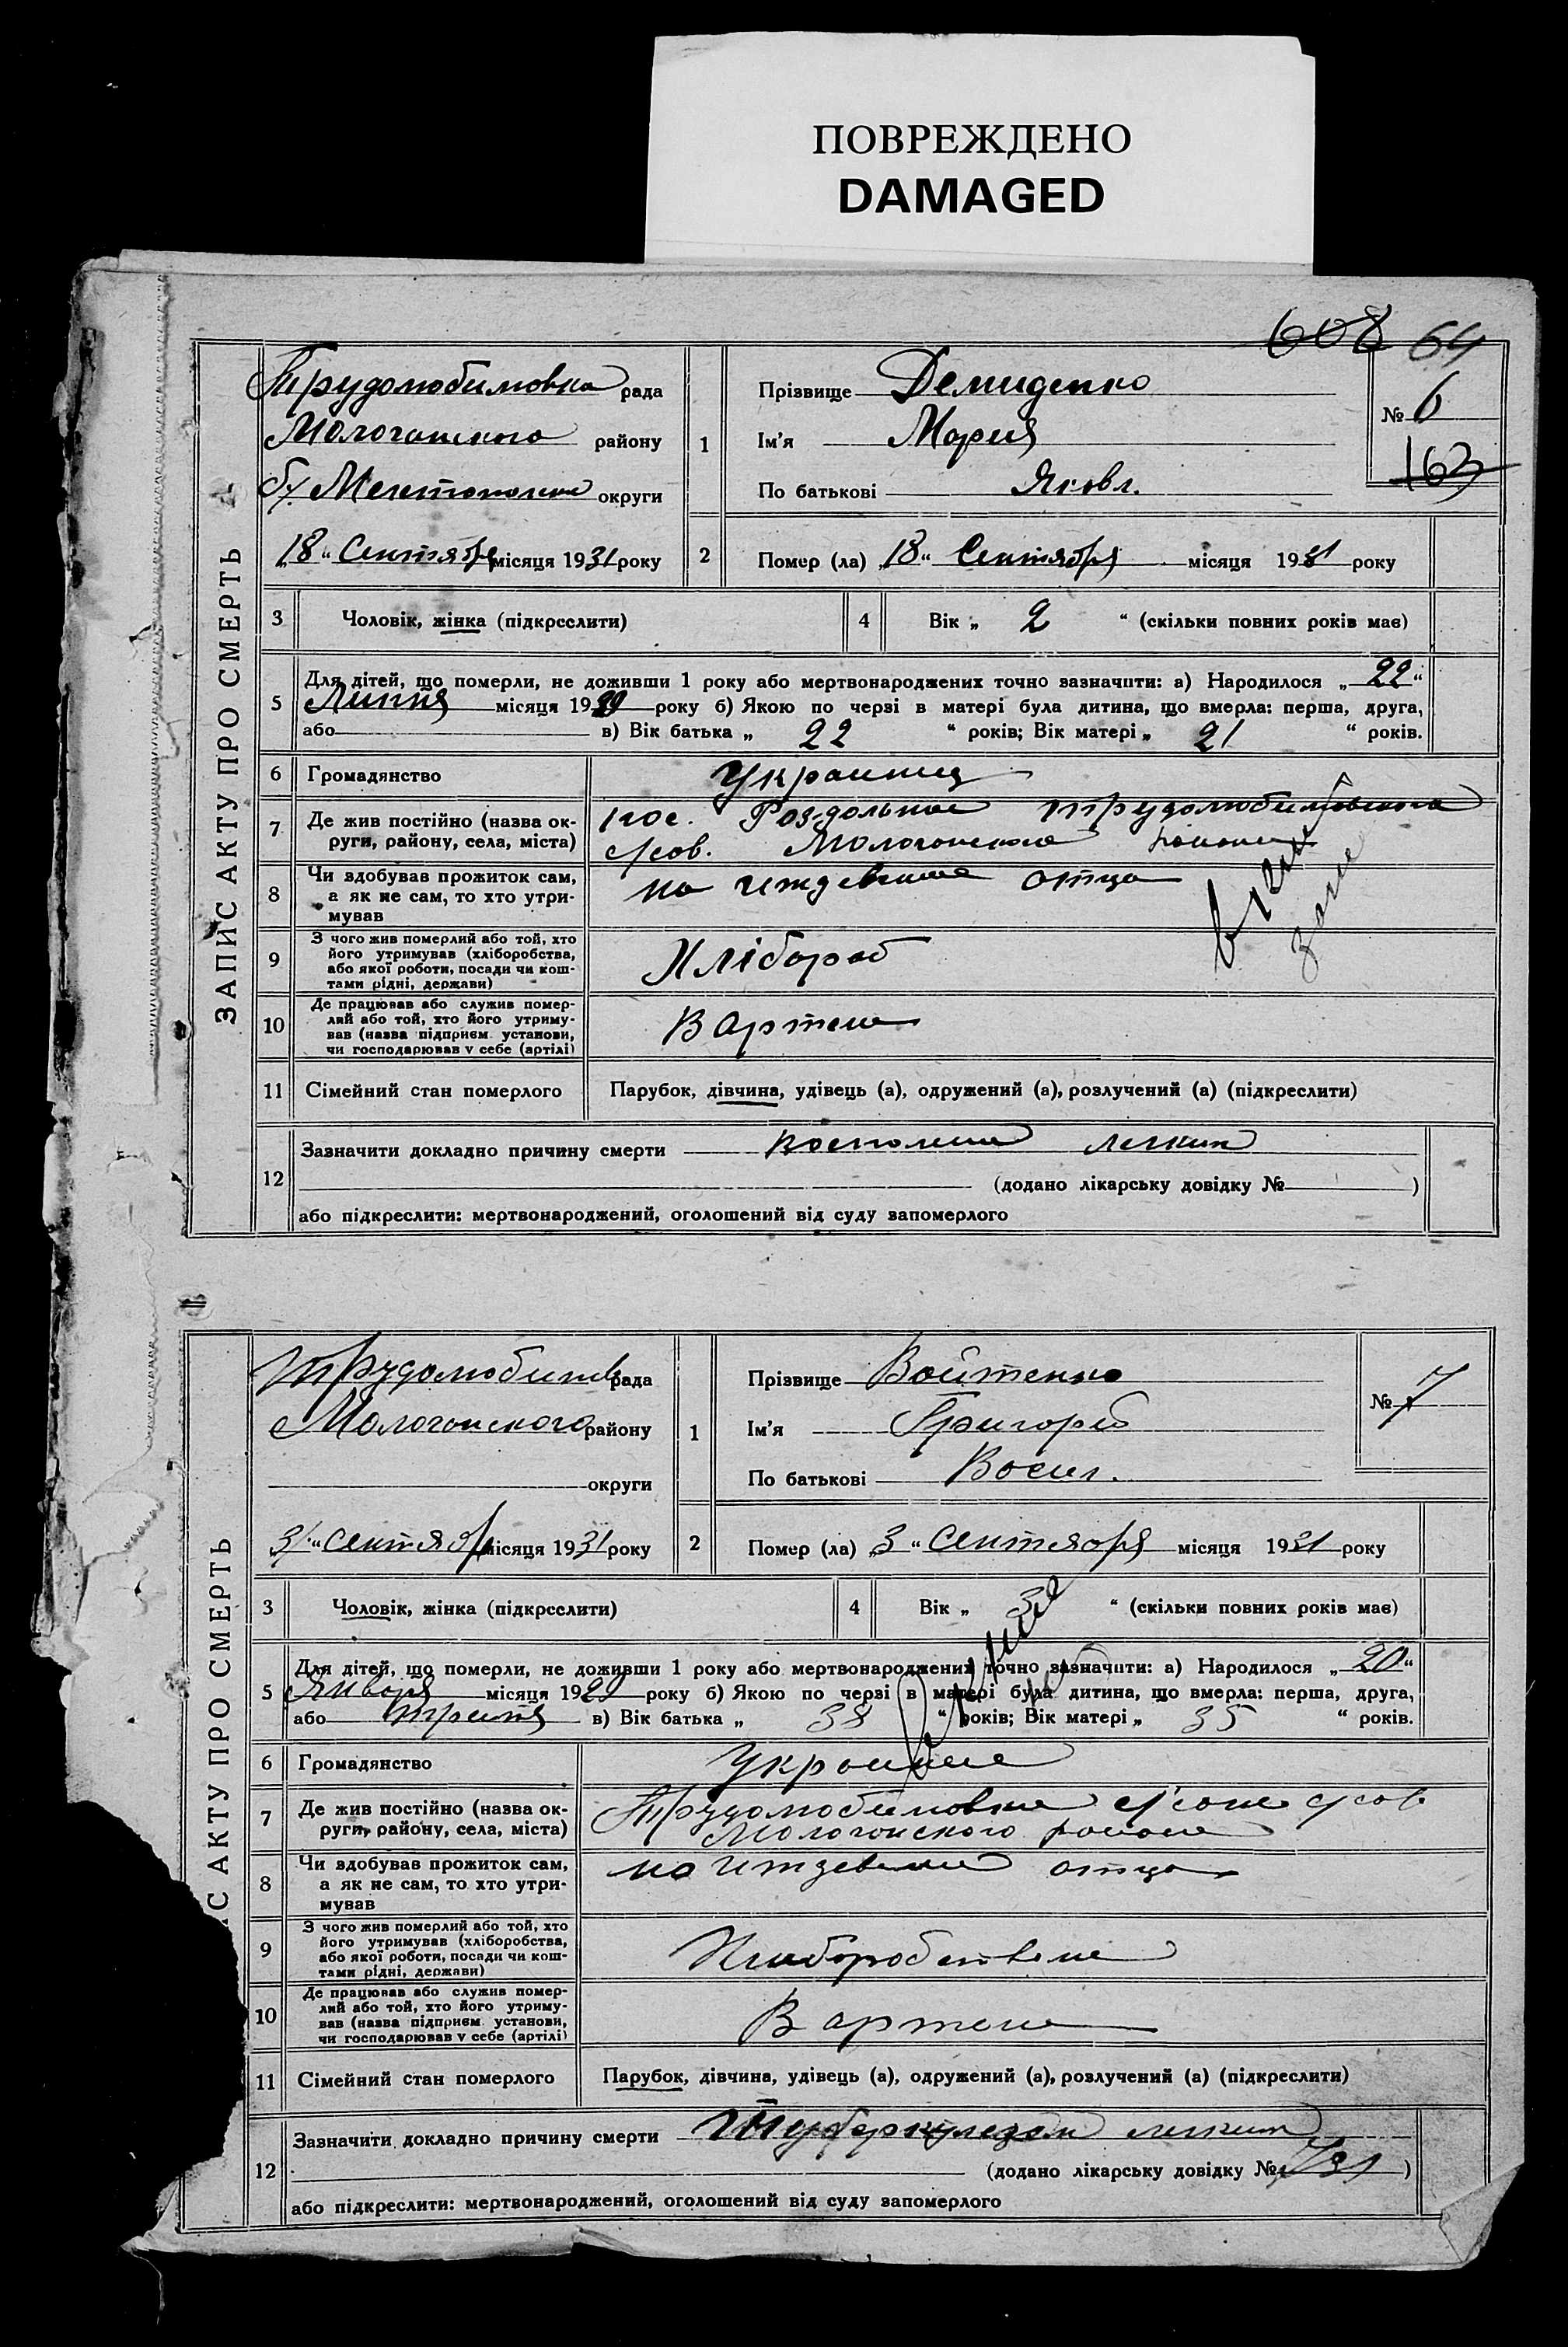 ПОВРЕЖДЕНО
DAMAGED
608 64
ЗАПИС АКТУ ПРО СМЕРТЬ
Трудолюбимовка рада
Молочанського району
б/ Мелитопольск округи
„18“ Сентября місяця 1931 року
1
Прізвище Демиденко
Ім'я Мария
По батькові Яковл.
№ 6
163
2
Помер (ла) „18“ Сентября місяця 1931 року
3 Чоловік, жінка (підкреслити)
4 Вік „ 2 “ (скільки повних років має)
5
Для дітей, що померли, не доживши 1 року або мертвонароджених точно зазначити: а) Народилося „ 22“
Липня місяця 1929 року б) Якою по черзі в матері була дитина, що вмерла: перша, друга,
або в) Вік батька „ 22 “ років; Вік матері „ 21 “ років.
6 Громадянство Украинец
7 Де жив постійно (назва ок-
руги, району, села, міста)
пос. Роздольное Трудолюбимовского
с/сов. Молочанского района
8 Чи здобував прожиток сам,
а як не сам, то хто утри-
мував
на иждевение отца
9 З чого жив померлий або той, хто
його утримував (хліборобства,
або якої роботи, посади чи кош-
тами рідні, держави)
Хлібороб
10 Де працював або служив помер-
лий або той, хто його утриму-
вав (назва підприєм. установи,
чи господарював у себе (артілі)
В Артели
11 Сімейний стан померлого Парубок, дівчина, удівець (а), одружений (а), розлучений (а) (підкреслити)
12
Зазначити докладно причину смерти Восполение легких
(додано лікарську довідку № )
або підкреслити: мертвонароджений, оголошений від суду запомерлого
С АКТУ ПРО СМЕРТЬ
Трудолюбимов рада
Молочанского району
округи
„3“ Сентября місяця 1931 року
1
Прізвище Войтенко
Ім'я Григорій
По батькові Восил.
№ 7
2
Помер (ла) „3“ Сентября місяця 1931 року
3 Чоловік, жінка (підкреслити)
4 Вік „ “ (скільки повних років має)
5
Для дітей, що померли, не доживши 1 року або мертвонароджених точно зазначити: а) Народилося „ 20“
Января місяця 1929 року б) Якою по черзі в матері була дитина, що вмерла: перша, друга,
або третя в) Вік батька „ 38 “ років; Вік матері „ 35 “ років.
6 Громадянство
7 Де жив постійно (назва ок-
руги, району, села, міста)
Трудолюбимовка с/сов.
Молочонского района
8 Чи здобував прожиток сам,
а як не сам, то хто утри-
мував
на отца
9 З чого жив померлий або той, хто
його утримував (хліборобства,
або якої роботи, посади чи кош-
тами рідні, держави)
10 Де працював або служив помер-
лий або той, хто його утриму-
вав (назва підприєм. установи,
чи господарював у себе (артілі)
В артели
11 Сімейний стан померлого Парубок, дівчина, удівець (а), одружений (а), розлучений (а) (підкреслити)
12
Зазначити докладно причину смерти Туберкулезом легких
(додано лікарську довідку № 731 )
або підкреслити: мертвонароджений, оголошений від суду запомерлого